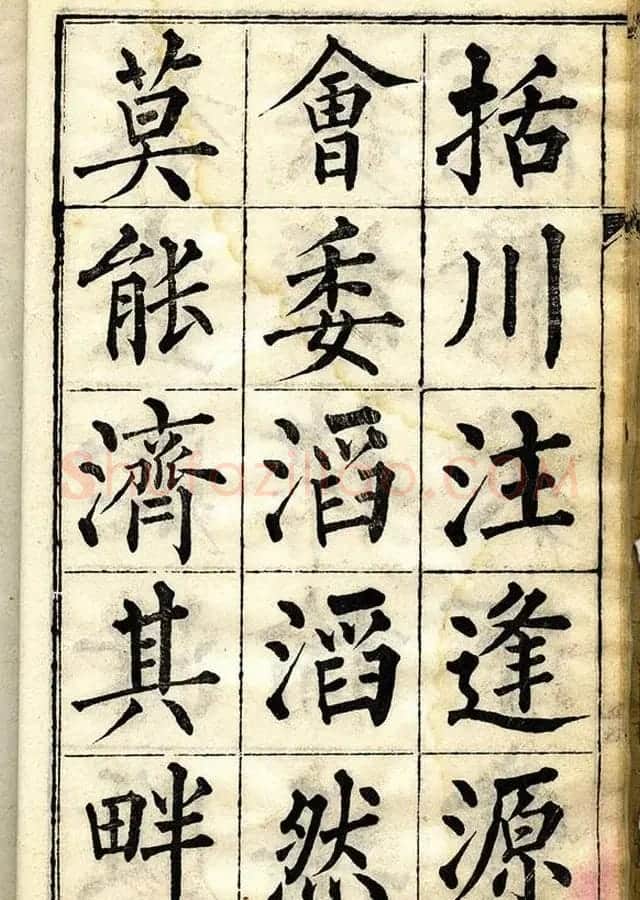 括川注逢源
會委滔滔然
莫能濟其畔